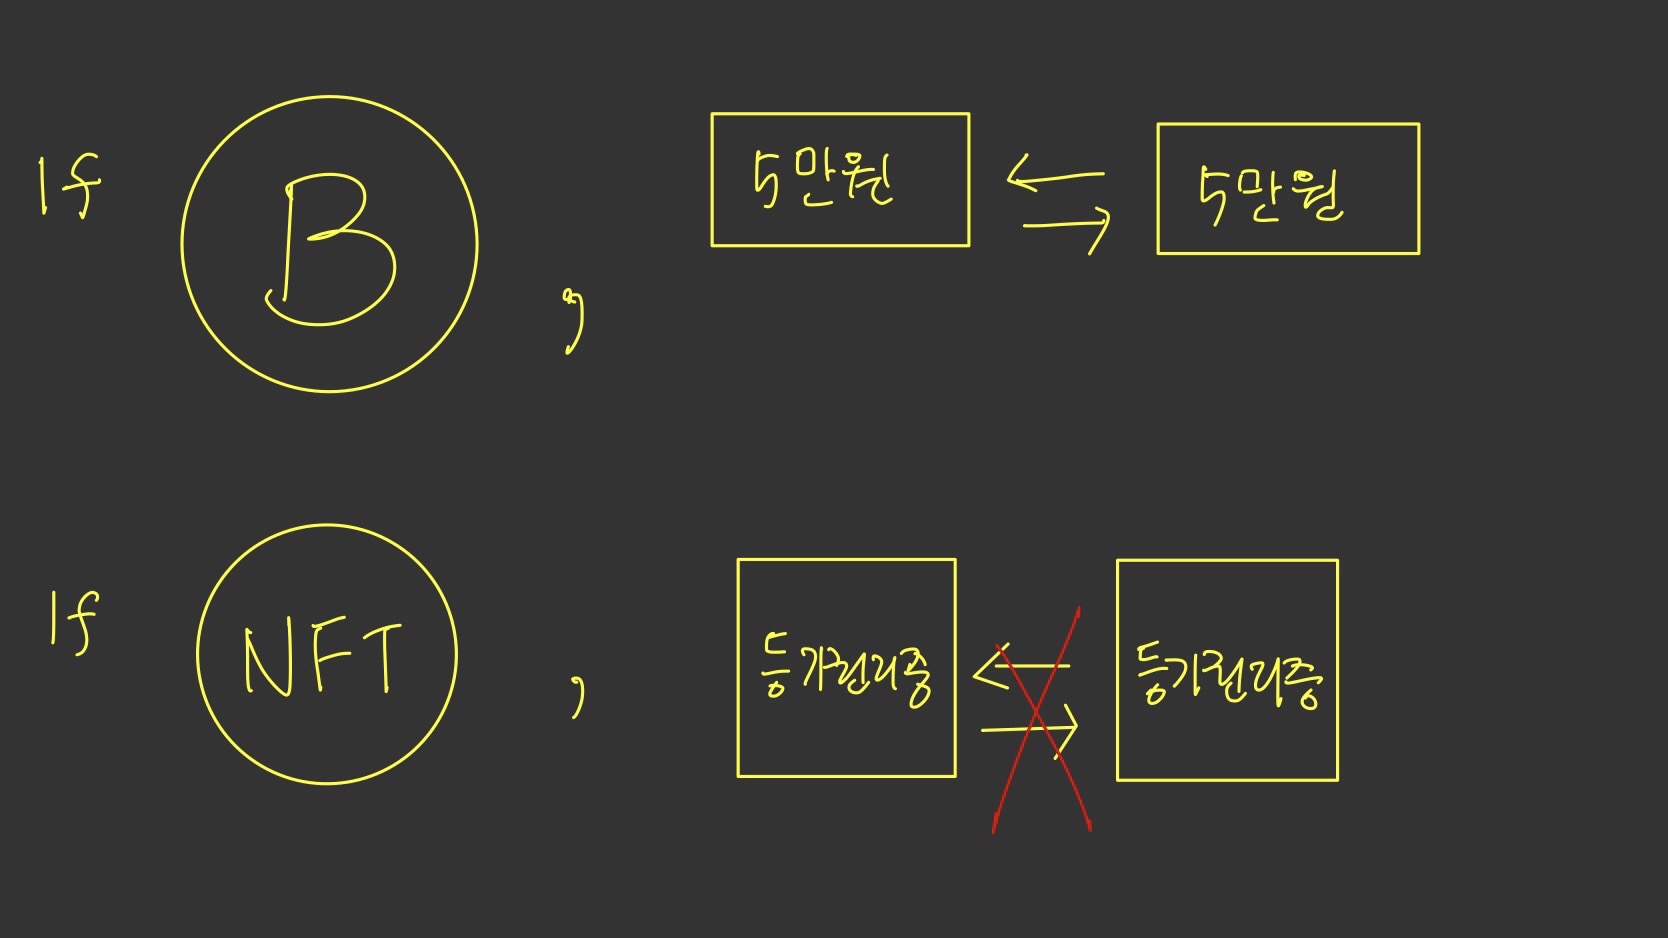 If B , 5만원 5만원
If NFT , 등기권리증 등기권리증